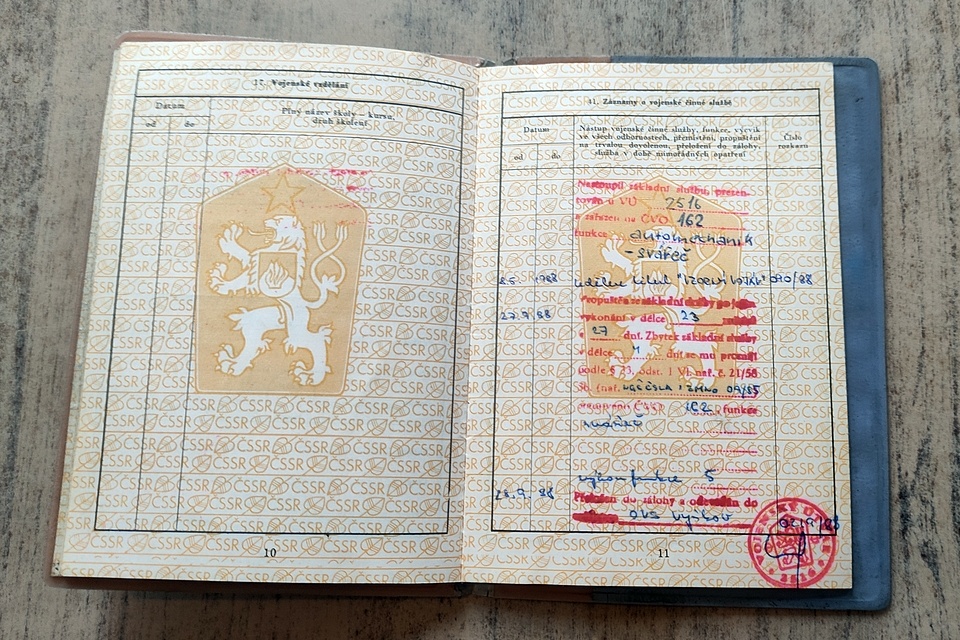 17. Vojenské vzdělání
Datum
od do
Plný název školy – kursu,
druh školení
10
41. Záznamy o vojenské činné službě
Datum
od do
Nástup vojenské činné služby, funkce, výcvik
ve všech odbornostech, přemístění, propuštění
na trvalou dovolenou, přeložení do zálohy,
služba v době mimořádných opatření
Číslo
rozkazu
Nastoupil základní službu, prezen-
tován u VÚ 2516
a zařazen na ČVO 162
funkce automechanik
- svářeč
8.5. 1988 udělen titul "VZORNÝ VOJÁK" 090/88
27.9.88 Propuštěn ze základní služby po
vykonání v délce 23
a 27 dní. Zbytek základní služby
v délce 4 dní se mu promíjí
podle § 23, odst. 1 Vl. nař. č. 21/58
Sb. (nař.
ČSSR 162 funkce
svářeč
výkon funkce 5
28.9.88 Přeložen do zálohy a odeslán do
OVS Vyškov
11